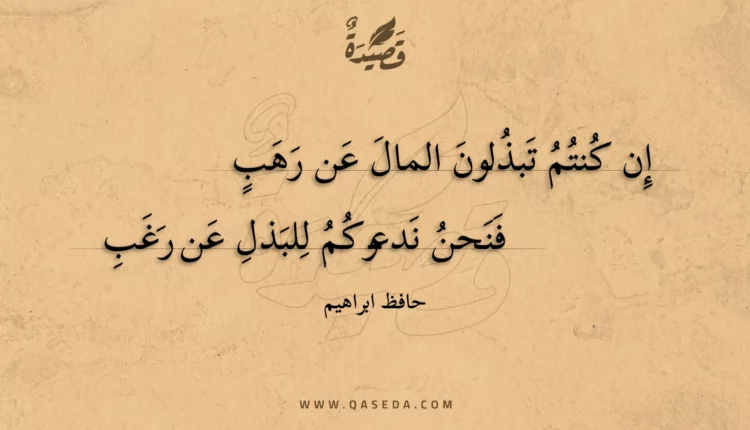 قَصِيْدَةٌ
إِن كُنتُمُ تَبذُلونَ المالَ عَن رَهَبٍ
فَنَحنُ نَدعوكُمُ لِلبَذلِ عَن رَغَبِ
حافظ ابراهيم
WWW.QASEDA.COM